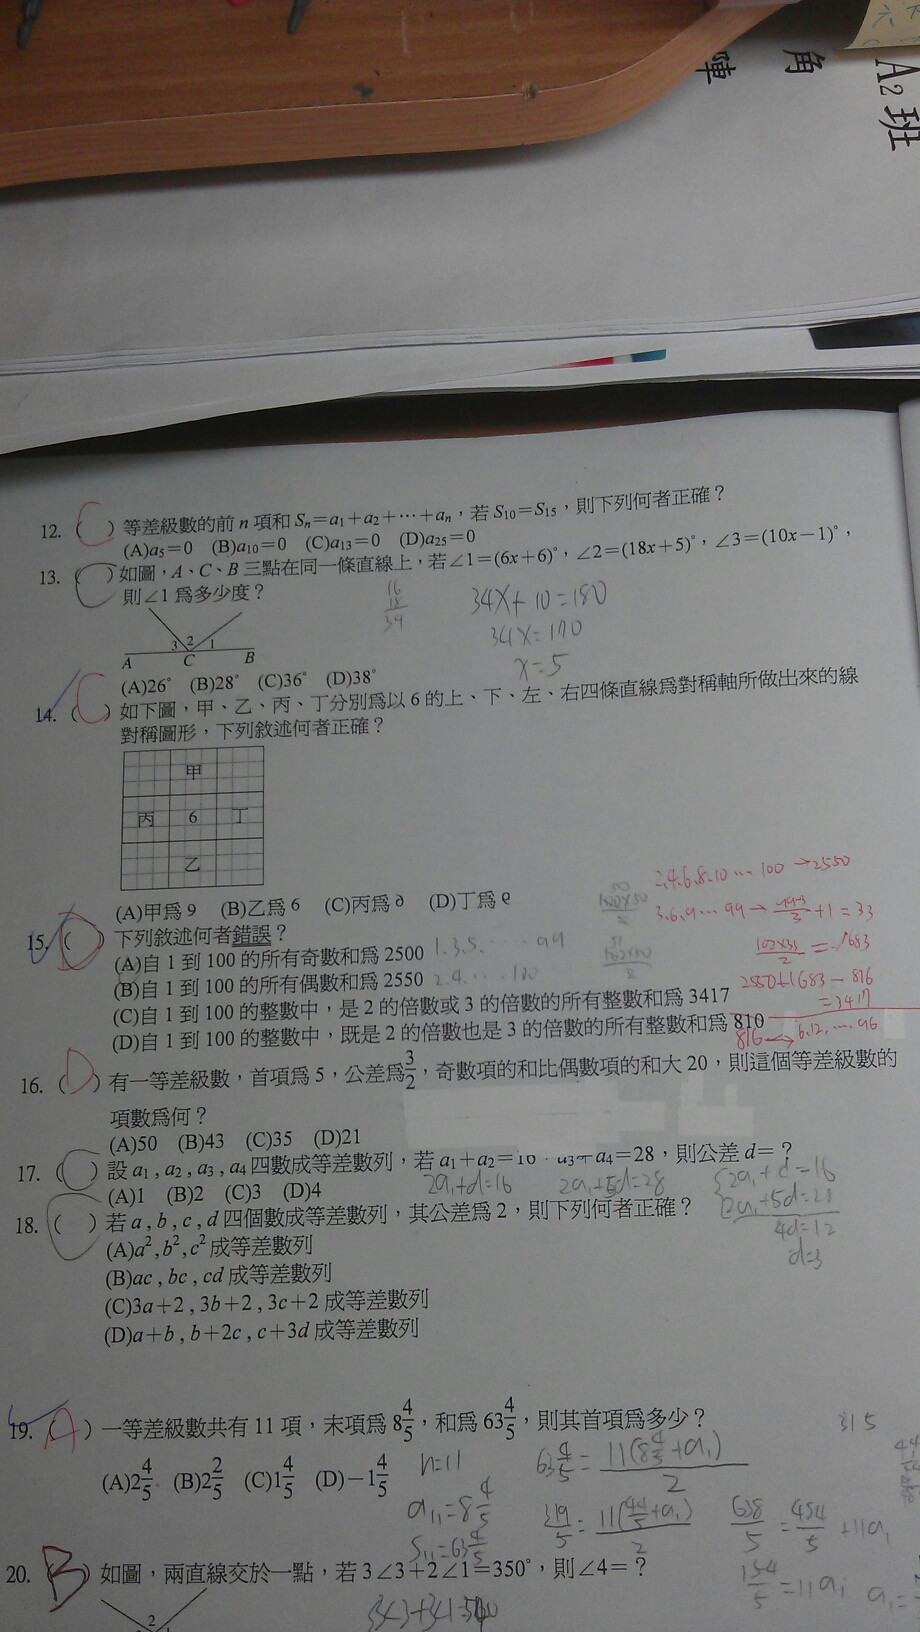 六
角
陣
A2班
12. (C) 等差級數的前 n 項和 Sn=a1+a2+⋯+an，若 S10=S15，則下列何者正確？
(A)a5=0 (B)a10=0 (C)a13=0 (D)a25=0
13. (C) 如圖，A、C、B 三點在同一條直線上，若∠1=(6x+6)°，∠2=(18x+5)°，∠3=(10x−1)°，
則∠1 為多少度？
16
18
34
34x+10=180
34x=170
x=5
3 2 1
A C B
(A)26° (B)28° (C)36° (D)38°
14. (C) 如下圖，甲、乙、丙、丁分別為以 6 的上、下、左、右四條直線為對稱軸所做出來的線
對稱圖形，下列敘述何者正確？
甲
丙 6 丁
乙
(A)甲為 9 (B)乙為 6 (C)丙為 ∂ (D)丁為 e
2.4.6.8.10 ⋯ 100 →2550
15. (D) 下列敘述何者錯誤？
3.6.9⋯ 99 → (99-3)/3 +1=33
(A)自 1 到 100 的所有奇數和為 2500 1.3.5.⋯⋯99
102×33/2 = 1683
(B)自 1 到 100 的所有偶數和為 2550 2.4.⋯⋯100
2550+1683−816
=3417
(C)自 1 到 100 的整數中，是 2 的倍數或 3 的倍數的所有整數和為 3417
(D)自 1 到 100 的整數中，既是 2 的倍數也是 3 的倍數的所有整數和為 810
816→ 6.12.⋯.96
16. (D) 有一等差級數，首項為 5，公差為3/2，奇數項的和比偶數項的和大 20，則這個等差級數的
項數為何？
(A)50 (B)43 (C)35 (D)21
17. (C) 設 a1 , a2 , a3 , a4 四數成等差數列，若 a1+a2=16，a3+a4=28，則公差 d=？
(A)1 (B)2 (C)3 (D)4
2a1+d=16 2a1+5d=28
2a1+d=16
2a1+5d=28
4d=12
d=3
18. (C) 若 a , b , c , d 四個數成等差數列，其公差為 2，則下列何者正確？
(A)a²,b²,c² 成等差數列
(B)ac , bc , cd 成等差數列
(C)3a+2 , 3b+2 , 3c+2 成等差數列
(D)a+b , b+2c , c+3d 成等差數列
19. (A) 一等差級數共有 11 項，末項為 8 4/5，和為 63 4/5，則其首項為多少？
315
(A)2 4/5 (B)2 2/5 (C)1 4/5 (D)−1 4/5
n=11
a11=8 4/5
S11=63 4/5
63 4/5 = 11(8 4/5+a1)/2
319/5 = 11(44/5+a1)/2
638/5 = 484/5 +11a1
154/5=11a1
20. (B) 如圖，兩直線交於一點，若 3∠3+2∠1=350°，則∠4=？
2